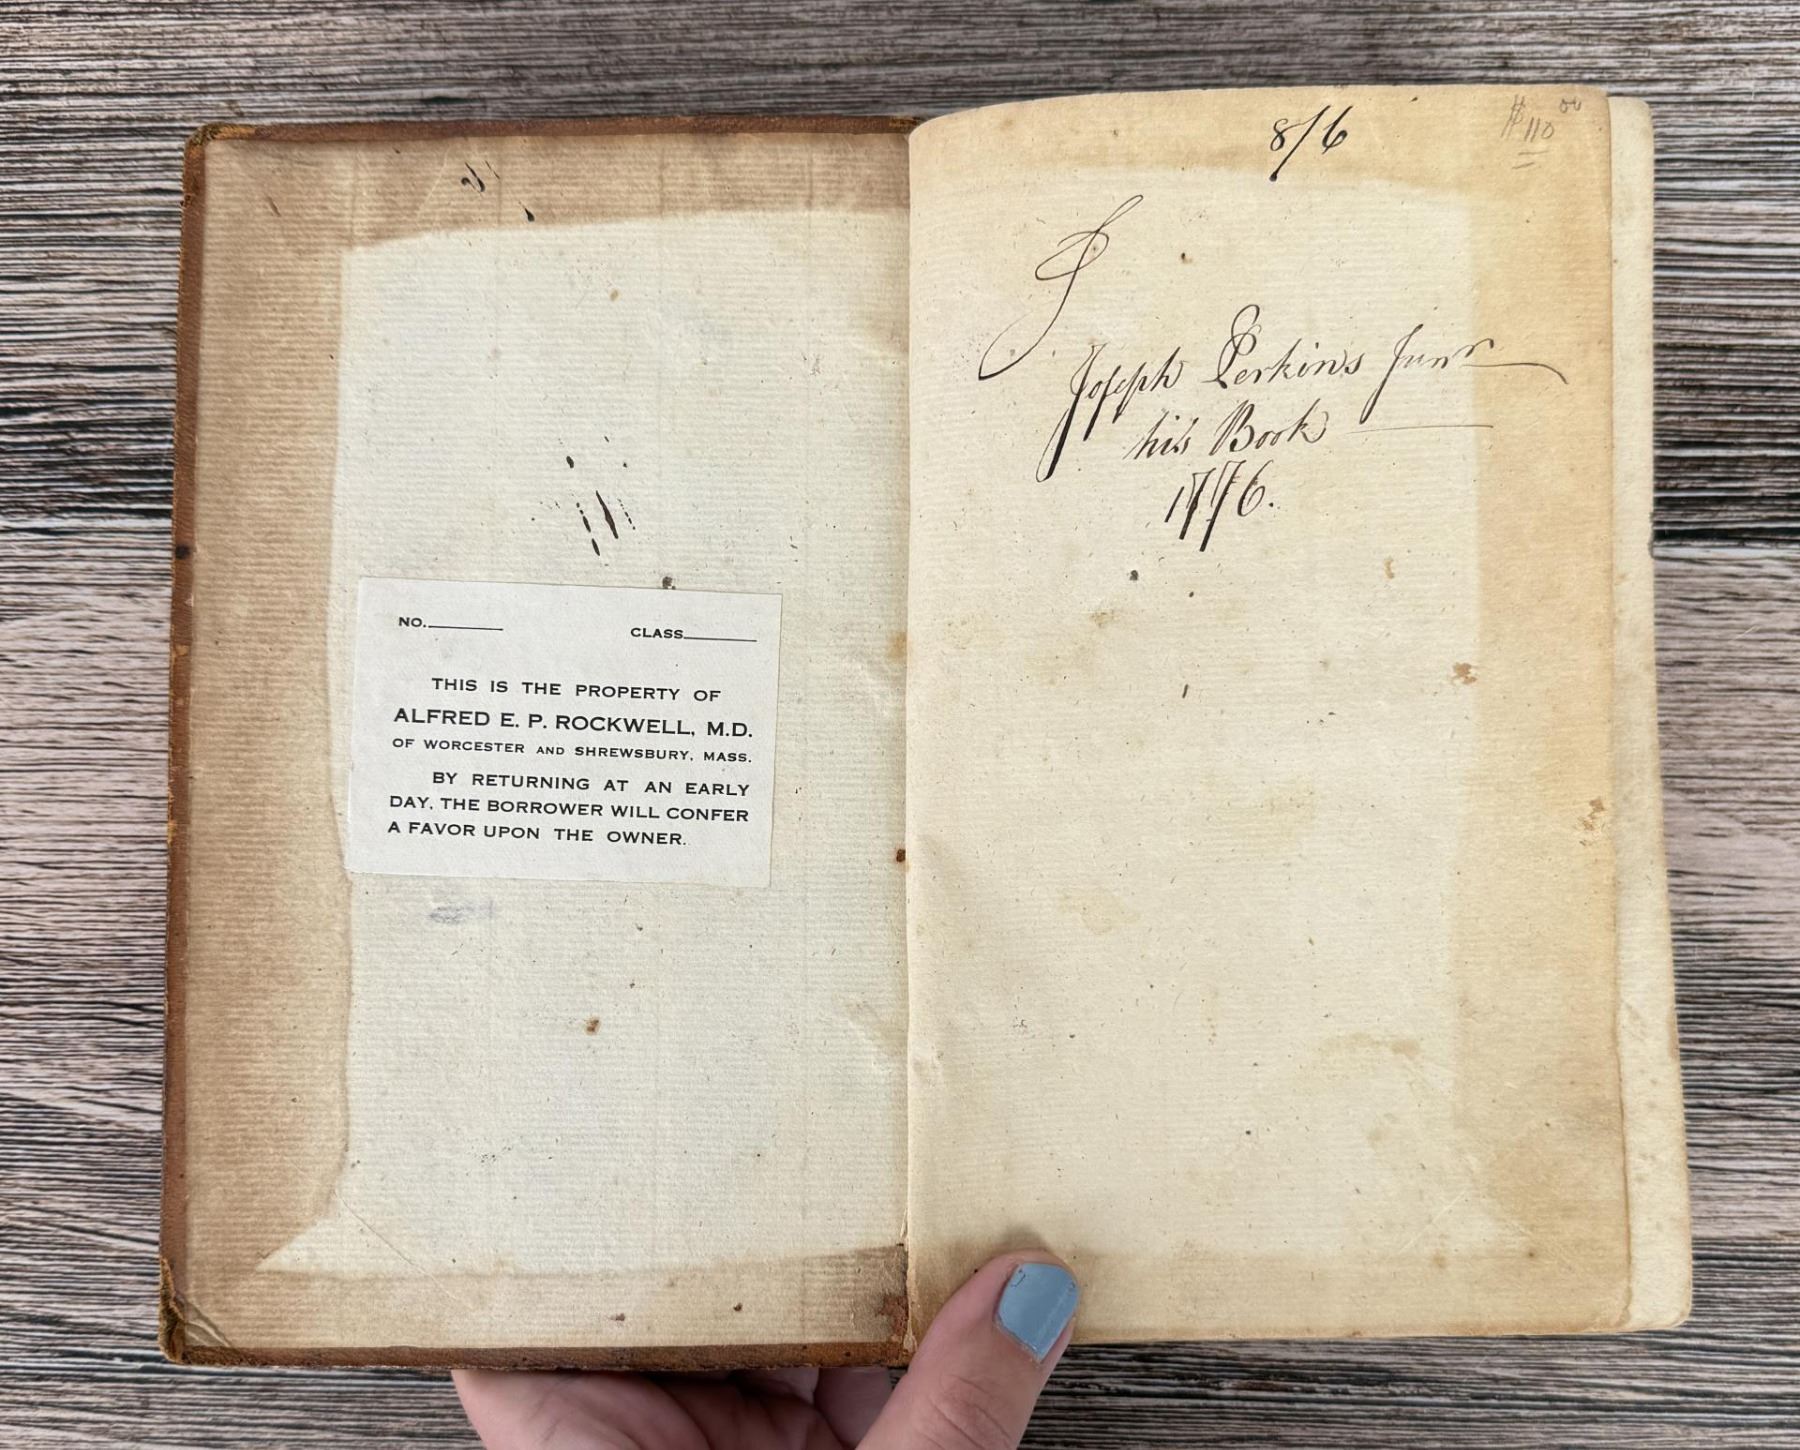 NO.______ CLASS______
THIS IS THE PROPERTY OF
ALFRED E. P. ROCKWELL, M.D.
OF WORCESTER AND SHREWSBURY, MASS.
BY RETURNING AT AN EARLY
DAY, THE BORROWER WILL CONFER
A FAVOR UPON THE OWNER.
8/6
$110 00
J
Joseph Perkins Junr
his Book
1776.